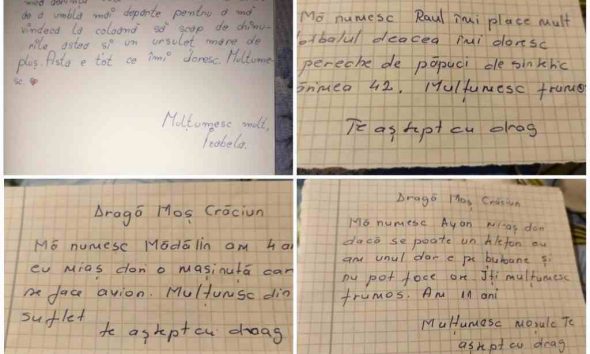 de a umbla mai departe pentru a mă
vindeca la coloană să scap de chinu-
rile astea și un ursuleț mare de
pluș. Asta e tot ce îmi doresc. Mulțume-
sc.
Mulțumesc mult,
Izabela.
Mă numesc Raul îmi place mult
fotbalul deacea îmi doresc
pereche de papuci de sintetic
mărimea 42. Mulțumesc frumos
Te aștept cu drag
Dragă Moș Crăciun
Mă numesc Mădălin am 4 ani
eu miaș dori o mașinuță care
se face avion. Mulțumesc din
suflet
te aștept cu drag
Dragă Moș Crăciun
Mă numesc Ayan miaș dori
dacă se poate un telefon eu
am unul dar e pe butoane și
nu pot face ore. Îți mulțumesc
frumos. Am 11 ani
Mulțumesc moșule Te
aștept cu drag